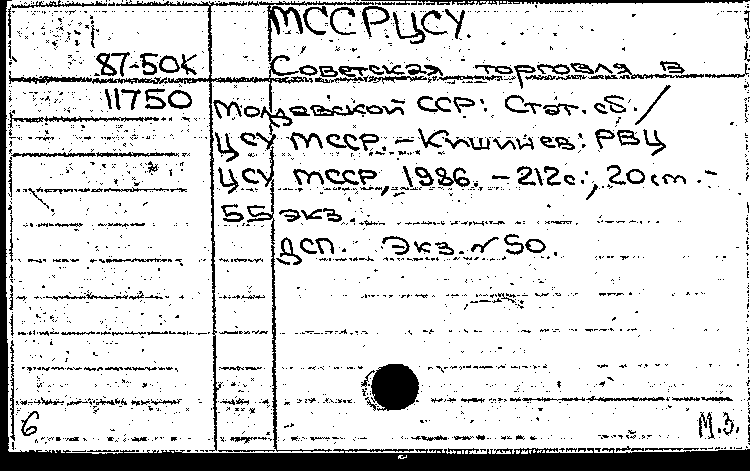 МССР. ЦСУ.
87-50К Советская торговля в
11750 Молдавской ССР: Стат. сб. /
ЦСУ МССР. – Кишинев: РВЦ
ЦСУ МССР, 1986. – 212с.; 20см. –
55 экз.
ДСП. Экз. № 50.
6 М.З.